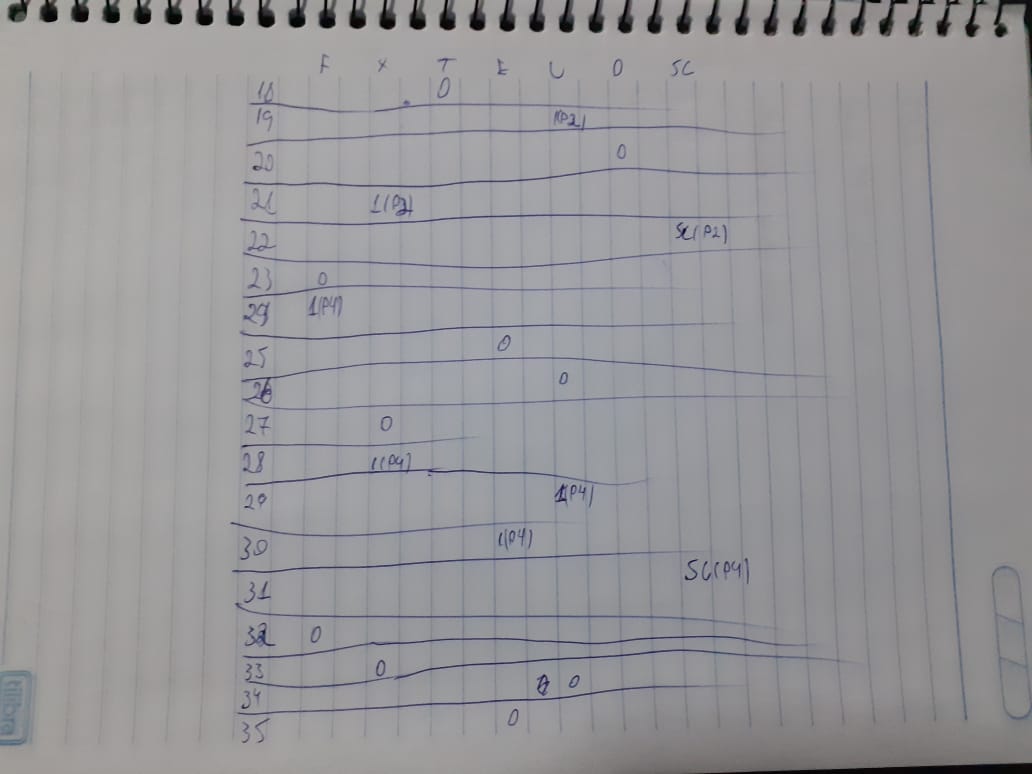 F X T E U O SC
18 0
19 1(P2)
20 0
21 1(P2)
22 SC(P2)
23 0
24 1(P4)
25 0
26 0
27 0
28 1(P4)
29 1(P4)
30 1(P4)
31 SC(P4)
32 0
33 0
34 0
35 0
tilibra